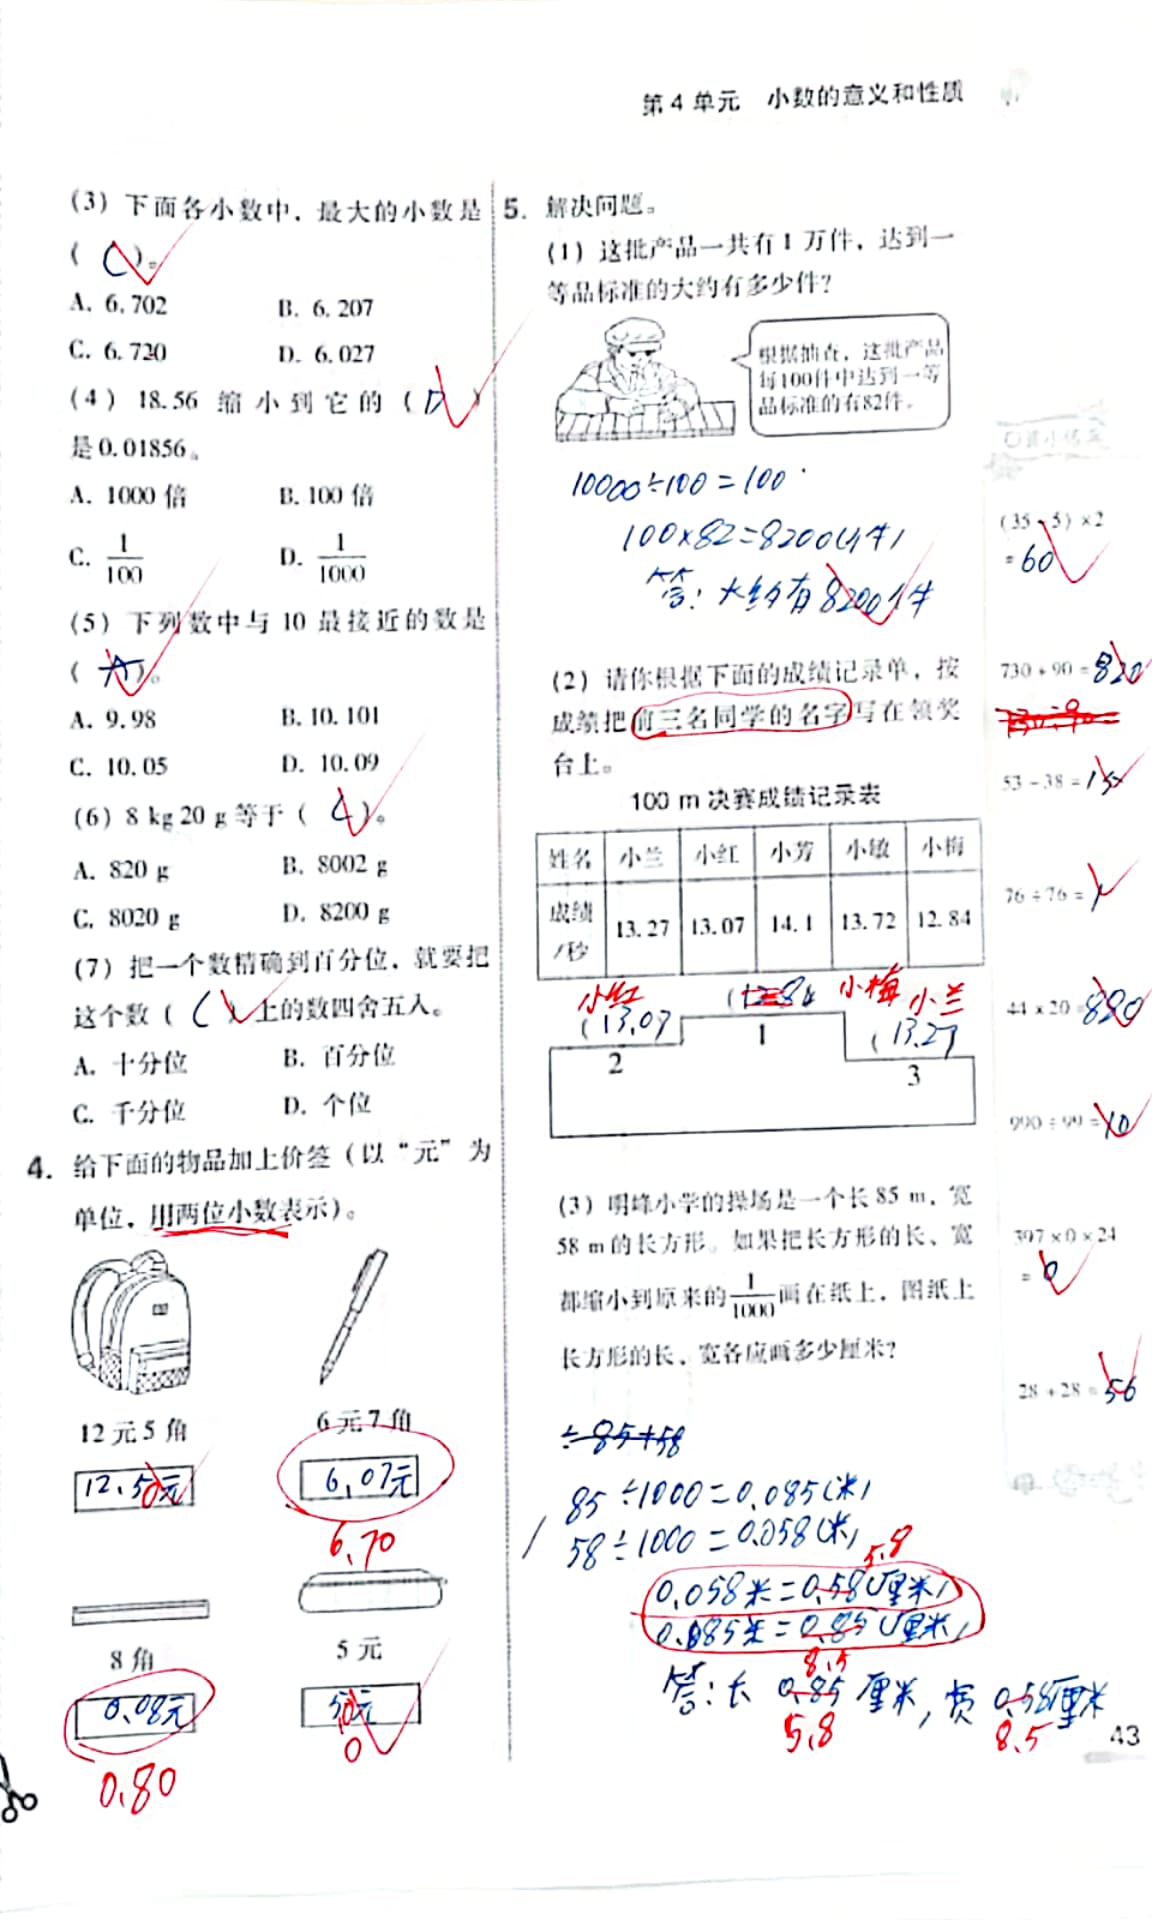 第4单元 小数的意义和性质
(3) 下面各小数中，最大的小数是
( C )。
A. 6.702 B. 6.207
C. 6.720 D. 6.027
(4) 18.56 缩小到它的 ( D )
是0.01856。
A. 1000倍 B. 100倍
C. 1/100 D. 1/1000
(5) 下列数中与10最接近的数是
( A )。
A. 9.98 B. 10.101
C. 10.05 D. 10.09
(6) 8 kg 20 g等于 ( C )。
A. 820 g B. 8002 g
C. 8020 g D. 8200 g
(7) 把一个数精确到百分位，就要把
这个数 ( C ) 上的数四舍五入。
A. 十分位 B. 百分位
C. 千分位 D. 个位
4. 给下面的物品加上价签（以“元”为
单位，用两位小数表示）。
12元5角 6元7角
12.50元 6.07元
6.70
8角 5元
0.08元 5.0元
0
0.80
5. 解决问题。
(1) 这批产品一共有1万件，达到一
等品标准的大约有多少件？
根据抽查，这批产品
每100件中达到一等
品标准的有82件。
10000÷100=100
100×82=8200(件)
答：大约有8200件
(2) 请你根据下面的成绩记录单，按
成绩把前三名同学的名字写在领奖
台上。
100 m决赛成绩记录表
姓名 小兰 小红 小芳 小敏 小梅
成绩/秒 13.27 13.07 14.1 13.72 12.84
小红 小梅 小兰
(13.07 (12.84 (13.27
2 1 3
(3) 明峰小学的操场是一个长85 m，宽
58 m的长方形。如果把长方形的长、宽
都缩小到原来的1/1000画在纸上，图纸上
长方形的长、宽各应画多少厘米？
÷85+58
85÷1000=0.085(米)
58÷1000=0.058(米)
5.8
0.058米=0.58(厘米)
0.085米=0.85(厘米)
8.5
答：长 0.85 厘米，宽 0.58厘米
5.8 8.5
(35-5)×2
=60
730+90=820
53-38=15
76÷76=1
44×20=880
990÷99=10
397×0×24
=0
28+28=56
43